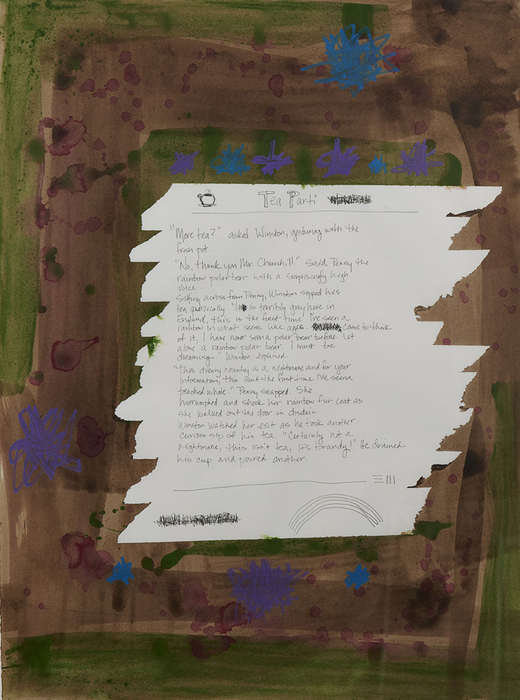 Tea Parti
"More tea?" asked Winston, gesturing with the
fresh pot.
"No, thank you Mr. Church!!" said Penny the
rainbow polar bear with a surprisingly high
voice
Sitting across from Penny, Winston sipped his
tea quizzically "It is terribly grey here in
England, this is the first time I've seen a
rainbow in what seems like ages. come to think
of it, I have never seen a polar bear before let
alone a rainbow polar bear. I must be
dreaming." Winston
"This dreary country is a nightmare and for your
information, this isn't the first time I've seen a
whale." Penny snapped. She
harrumphed and shook her rainbow fur coat as
she walked out the door in disdain
Winston watched her exit as he took another
curious sip of his tea. "Certainly not a
nightmare, this isn't tea, it's brandy!" He drained
his cup and poured another.